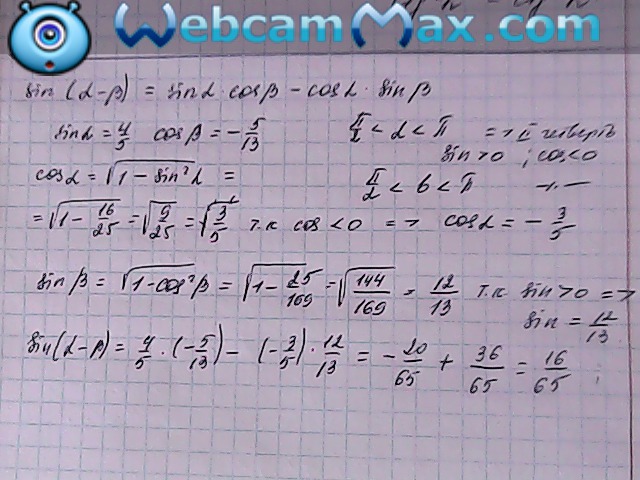 WebcamMax.com
sin(α-β) = sinα·cosβ - cosα·sinβ
sinα = 4/5 cosβ = -5/13 π/2 < α < π => II четверть
sin>0; cos<0
cosα = √(1 - sin²α) = π/2 < β < π -"-
= √(1 - 16/25) = √(9/25) = √(3/5) т.к cos < 0 => cosα = -3/5
sinβ = √(1-cos²β) = √(1 - 25/169) = √(144/169) = 12/13 т.к sin>0 =>
sin = 12/13
sin(α-β) = 4/5 · (-5/13) - (-3/5) · 12/13 = -20/65 + 36/65 = 16/65